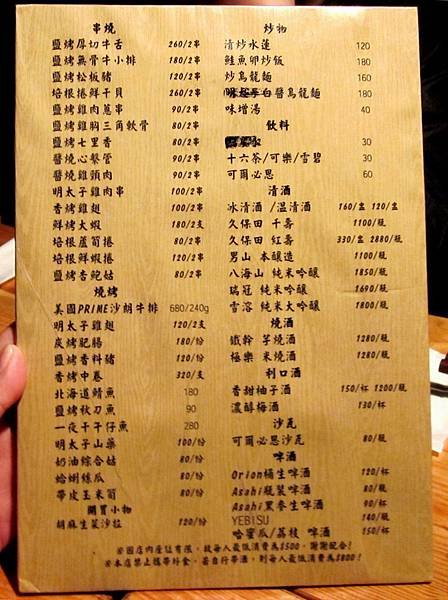 串燒
鹽烤厚切牛舌 260/2串
鹽烤無骨牛小排 180/2串
鹽烤松板豬 120/2串
培根捲鮮干貝 260/2串
鹽烤雞肉蔥串 90/2串
鹽烤雞胸三角軟骨 80/2串
鹽烤七里香 80/2串
醬燒心餐管 90/2串
醬燒雞頸肉 90/2串
明太子雞肉串 100/2串
香烤雞翅 100/2串
鮮烤大蝦 180/2支
培根蘆筍捲 80/2串
培根鮮蝦捲 120/2串
鹽烤杏鮑菇 80/2串
燒烤
美國PRIME沙朗牛排 680/240g
明太子雞翅 120/2支
炭烤肥腸 180/份
鹽烤香料豬 120/份
香烤中卷 320/支
北海道鯖魚 180
鹽烤秋刀魚 90
一夜干午仔魚 280
明太子山藥 100/份
奶油綜合菇 80/份
蛤蜊絲瓜 80/份
帶皮玉米筍 80/份
開胃小物
胡麻生菜沙拉 120/份
炒物
清炒水蓮 120
鮭魚卵炒飯 180
炒烏龍麵 160
醬烏龍麵 180
味增湯 40
飲料
30
十六茶/可樂/雪碧 30
可爾必思 60
清酒
冰清酒 /溫清酒 160/壺 120/壺
久保田 千壽 1100/瓶
久保田 紅壽 330/壺 2880/瓶
男山 本釀造 1100/瓶
八海山 純米吟釀 1850/瓶
瑞冠 純米吟釀 1690/瓶
雪溶 純米大吟釀 1800/瓶
燒酒
鐵幹 芋燒酒 1280/瓶
極樂 米燒酒 1280/瓶
利口酒
香甜柚子酒 150/杯 1200/瓶
濃醇梅酒 130/杯
沙瓦
可爾必思沙瓦 80/瓶
啤酒
Orion桶生啤酒 120/杯
Asahi瓶裝啤酒 80/瓶
Asahi黑麥生啤酒 90/杯
YEBISU 140/瓶
哈蜜瓜/荔枝 啤酒 150/杯
※因店內座位有限，故每人最低消費為$500，謝謝配合！
※本店禁止攜帶外食，若自行帶酒，則每人最低消費為$800！